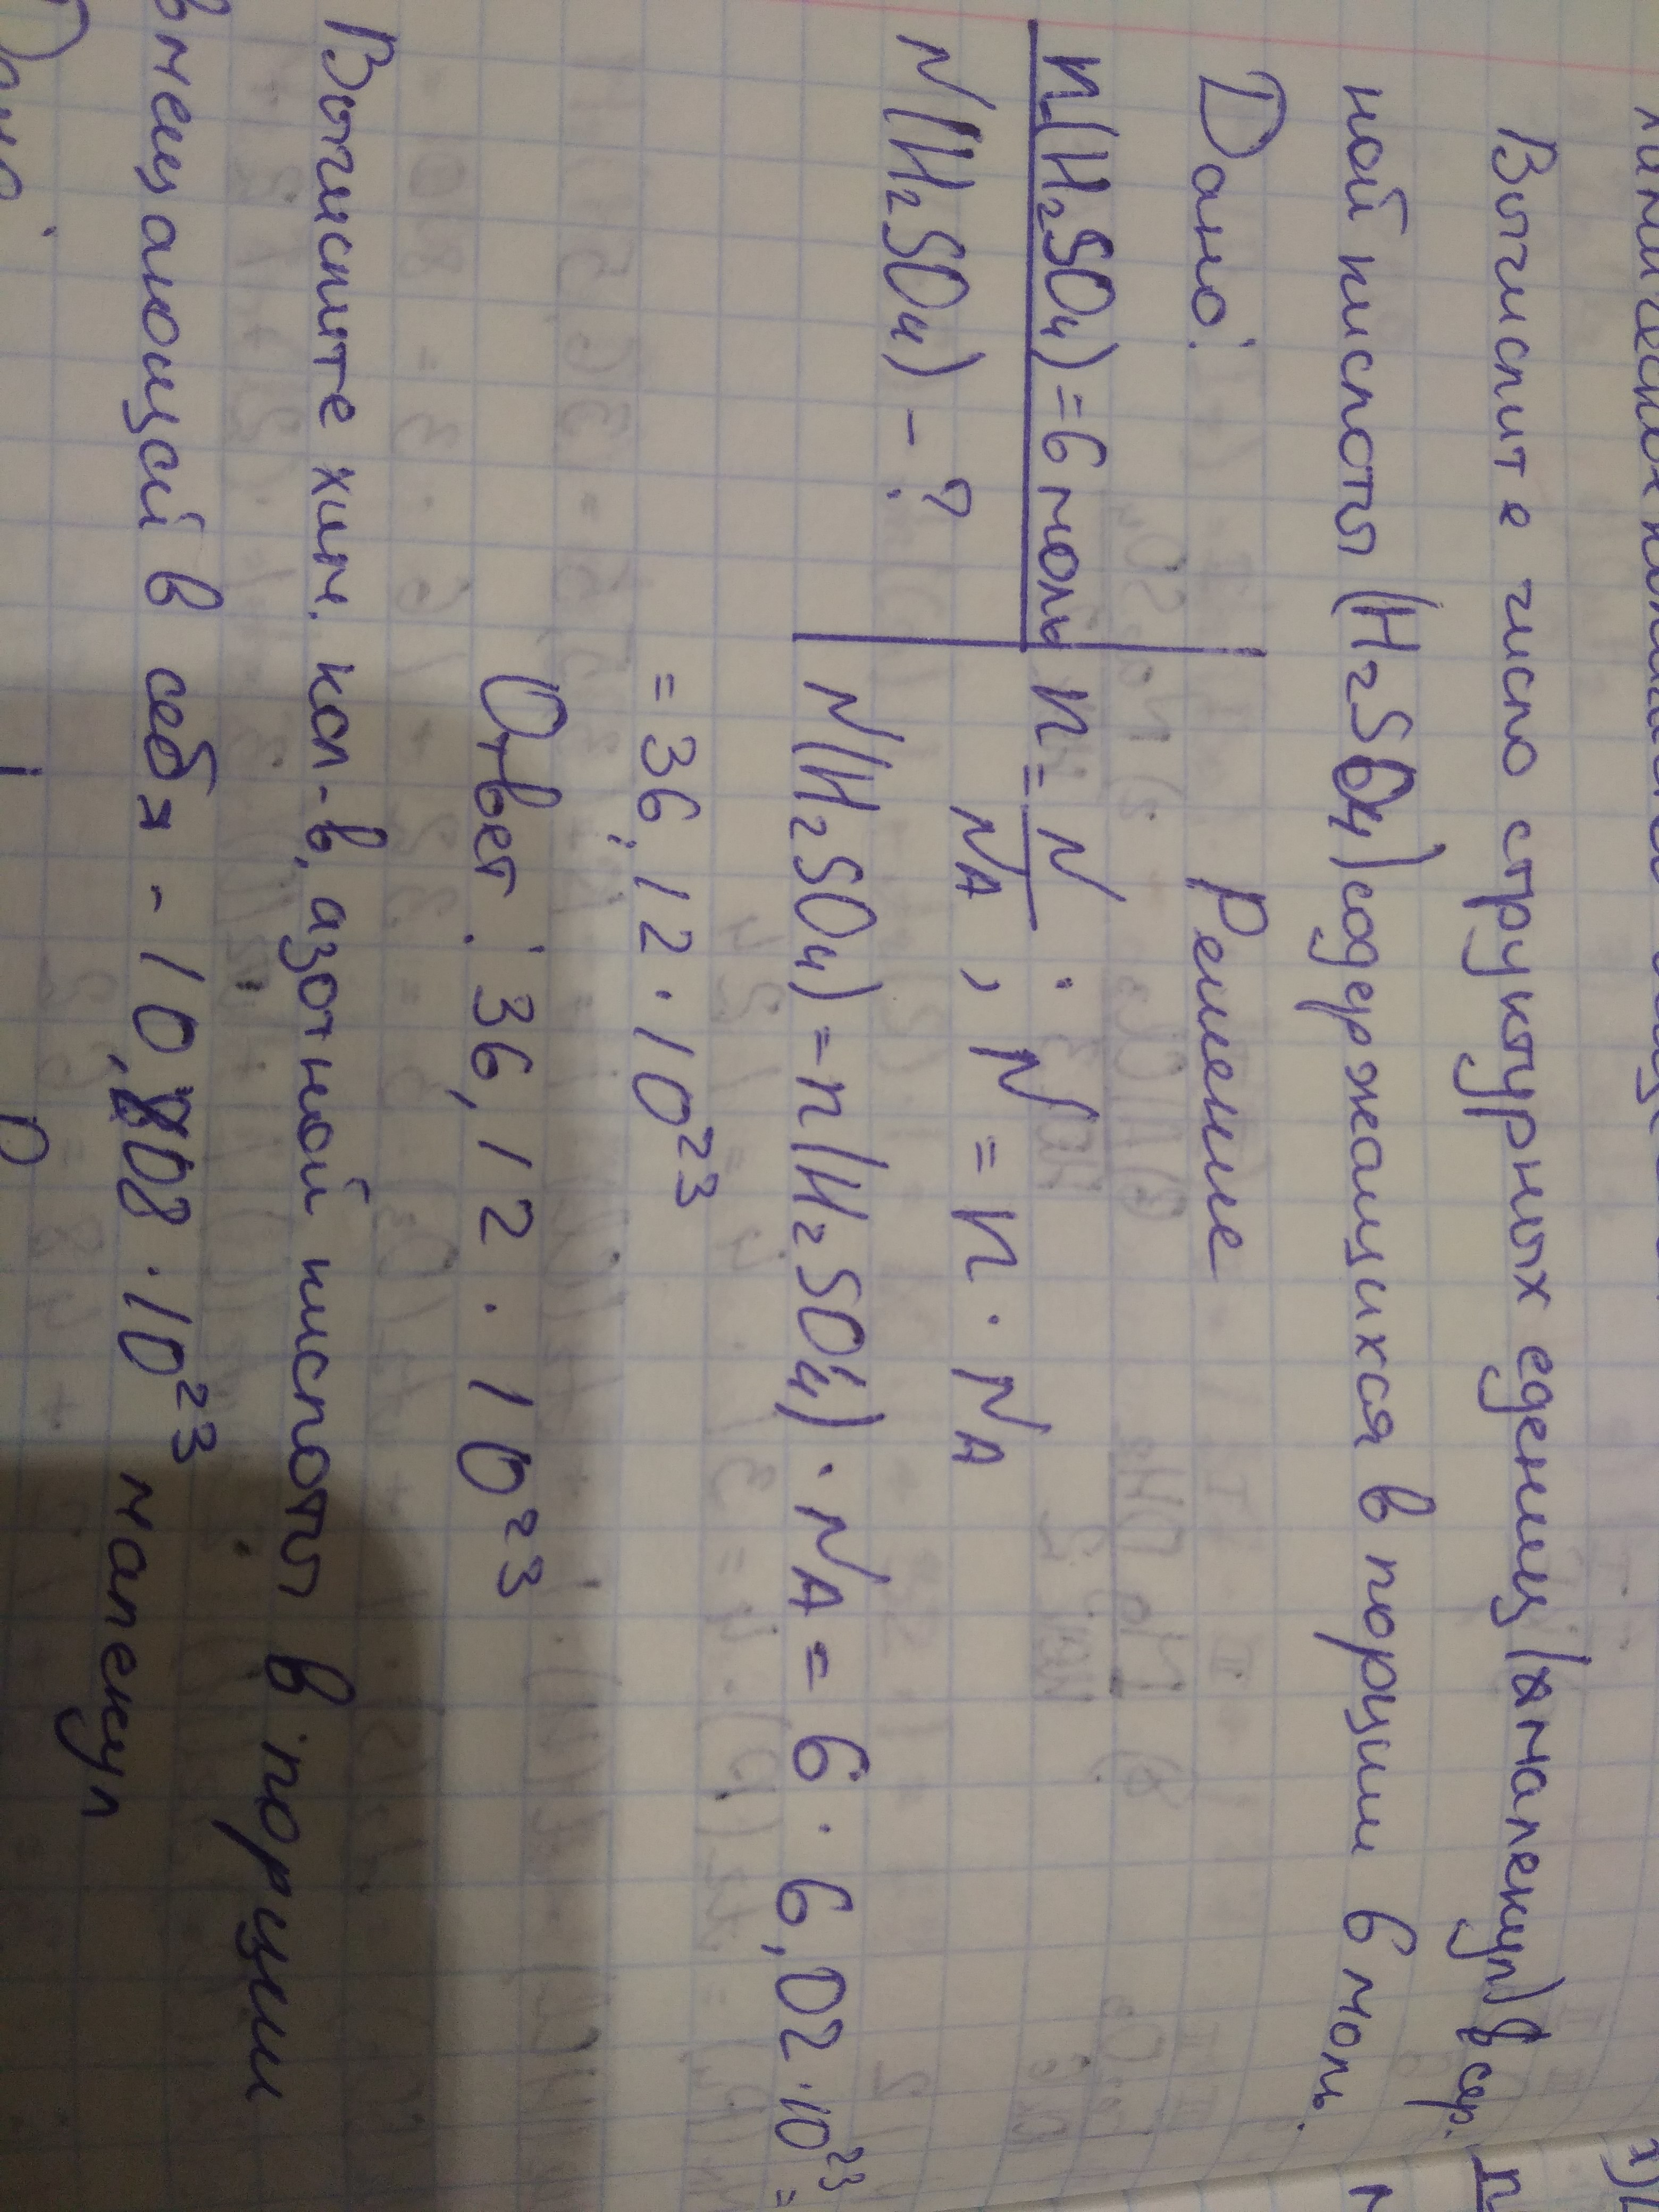 Вычислите число структурных единиц (малекул) в сер.
ной кислоты (H₂SO₄) содержащихся в порции 6 моль.
Дано: Решение
n(H₂SO₄)=6 моль n=N/NA ; N=n·NA
N(H₂SO₄)-? N(H₂SO₄)=n(H₂SO₄)·NA=6·6,02·10²³=
=36,12·10²³
Ответ: 36,12·10²³
Вычислите хим. кол-в, азотной кислоты в порции
вмещающей в себя - 10,808·10²³ малекул